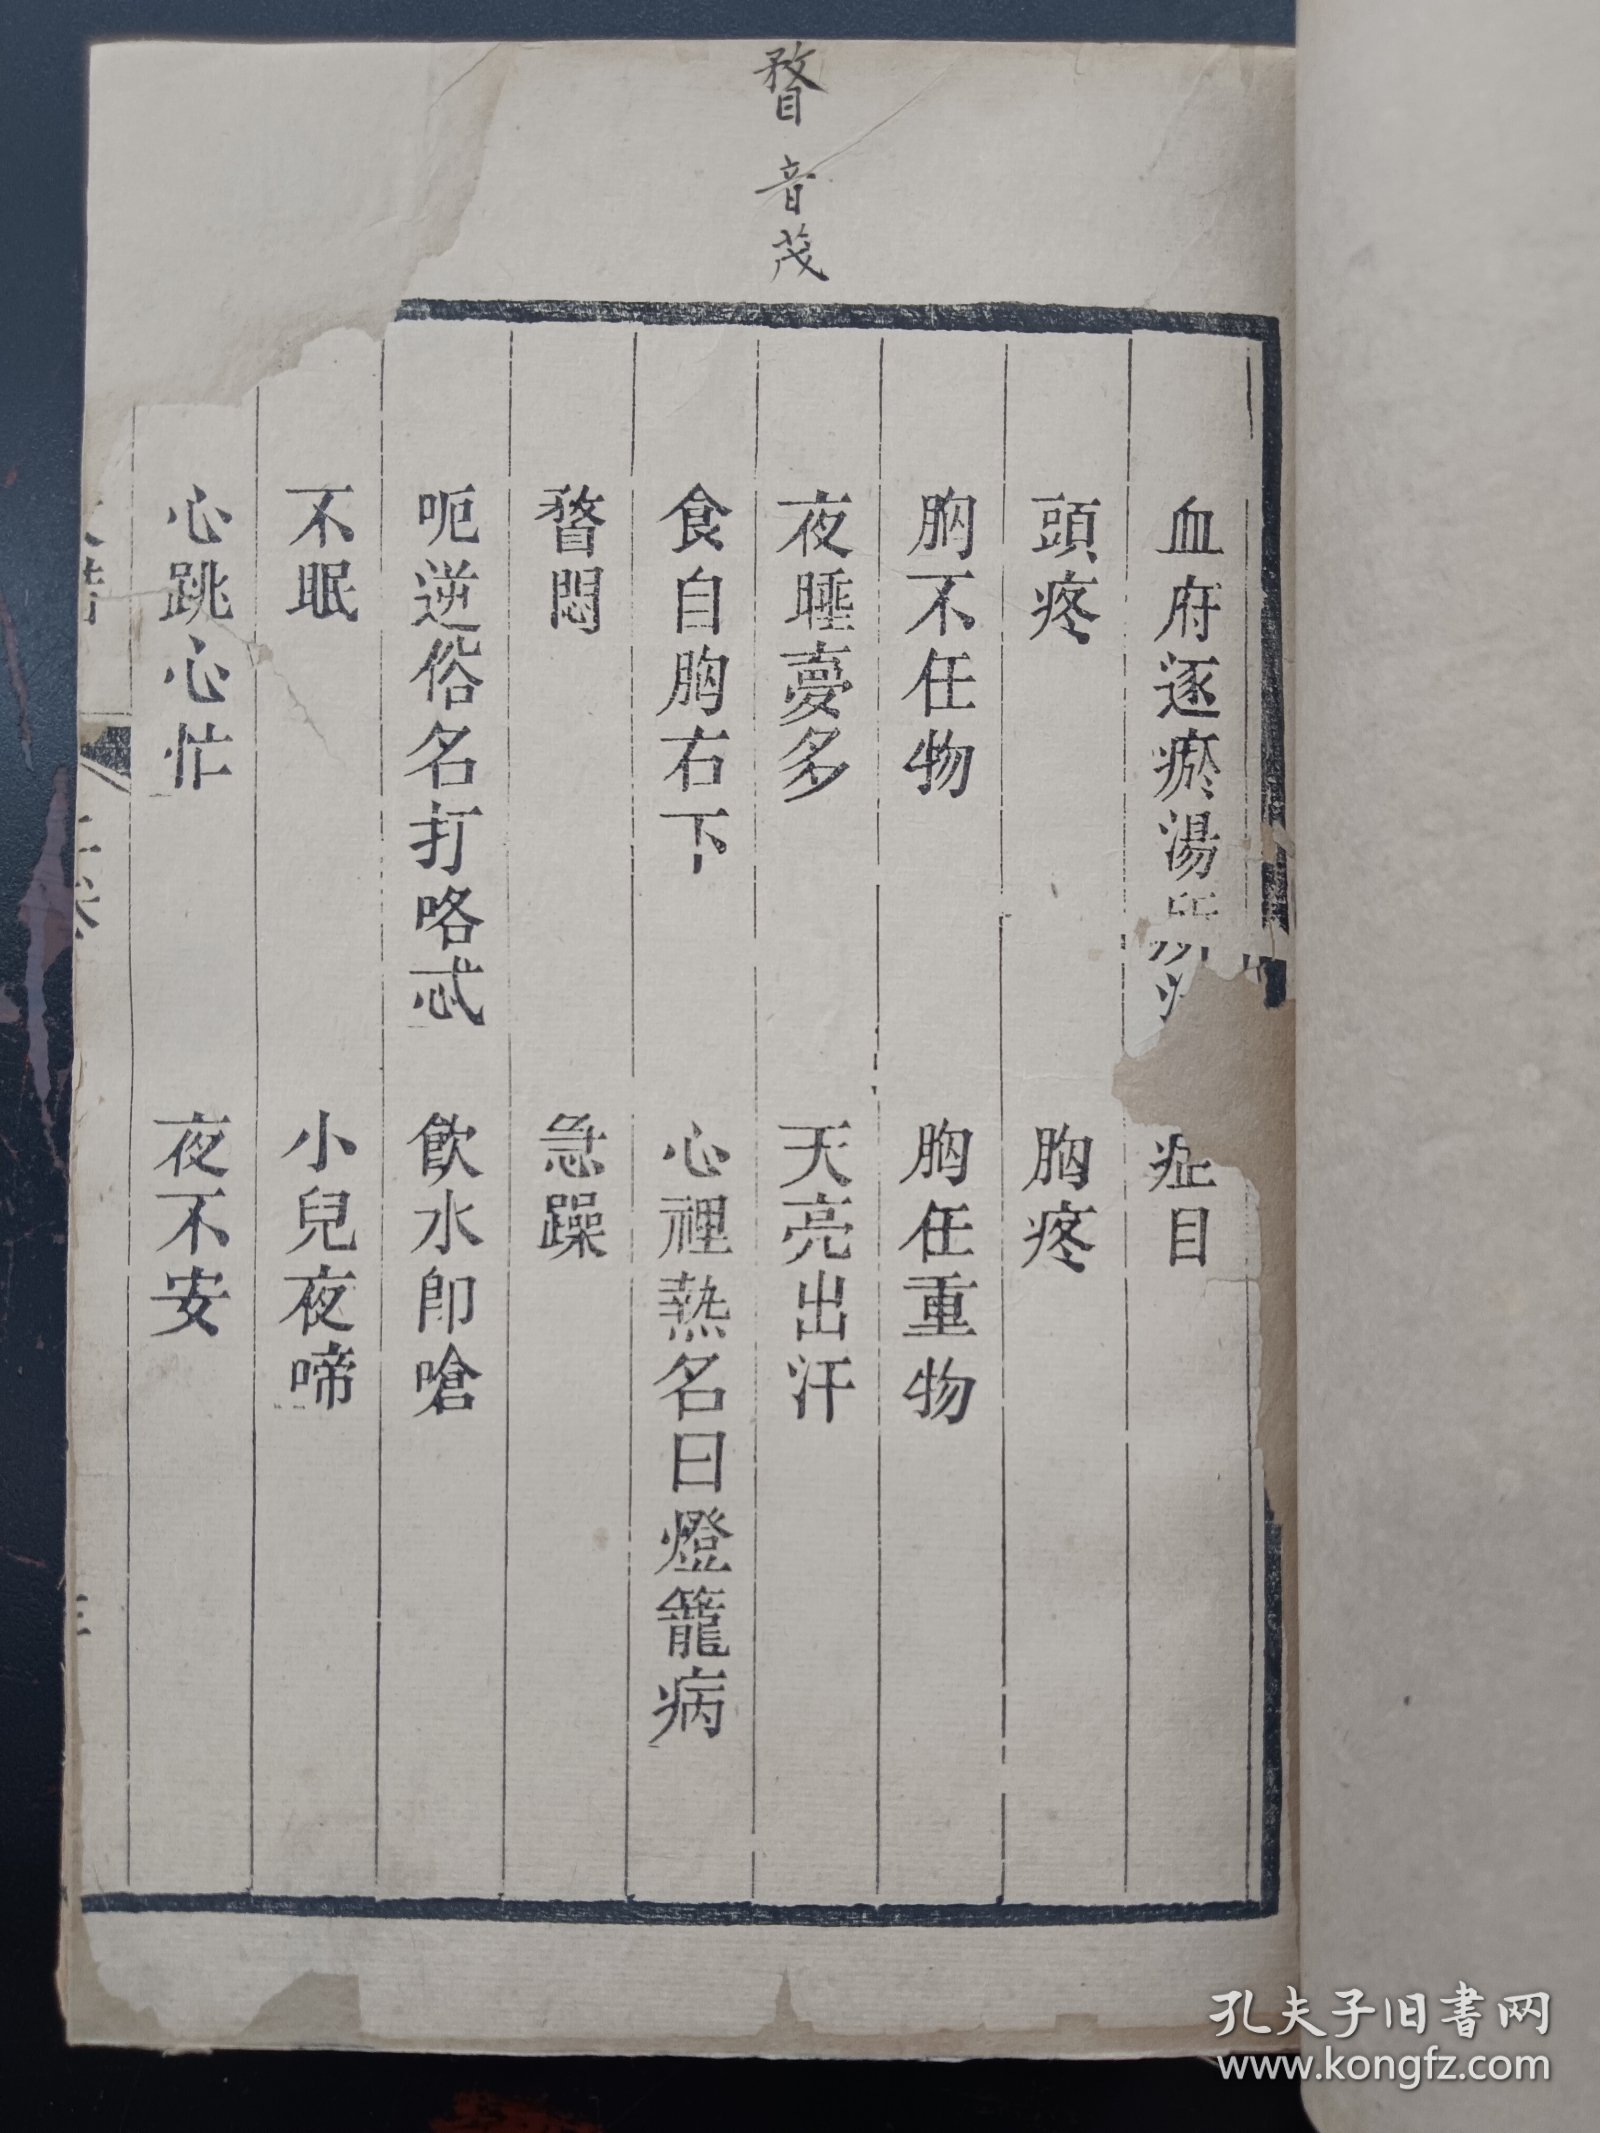 瞀 音茂
血府逐瘀湯所 症目
頭疼 胸疼
胸不任物 胸任重物
夜睡夢多 天亮出汗
食自胸右下 心裡熱名曰燈籠病
瞀悶 急躁
呃逆俗名打咯忒 飲水即嗆
不眠 小兒夜啼
心跳心忙 夜不安
孔夫子旧書网
www.kongfz.com